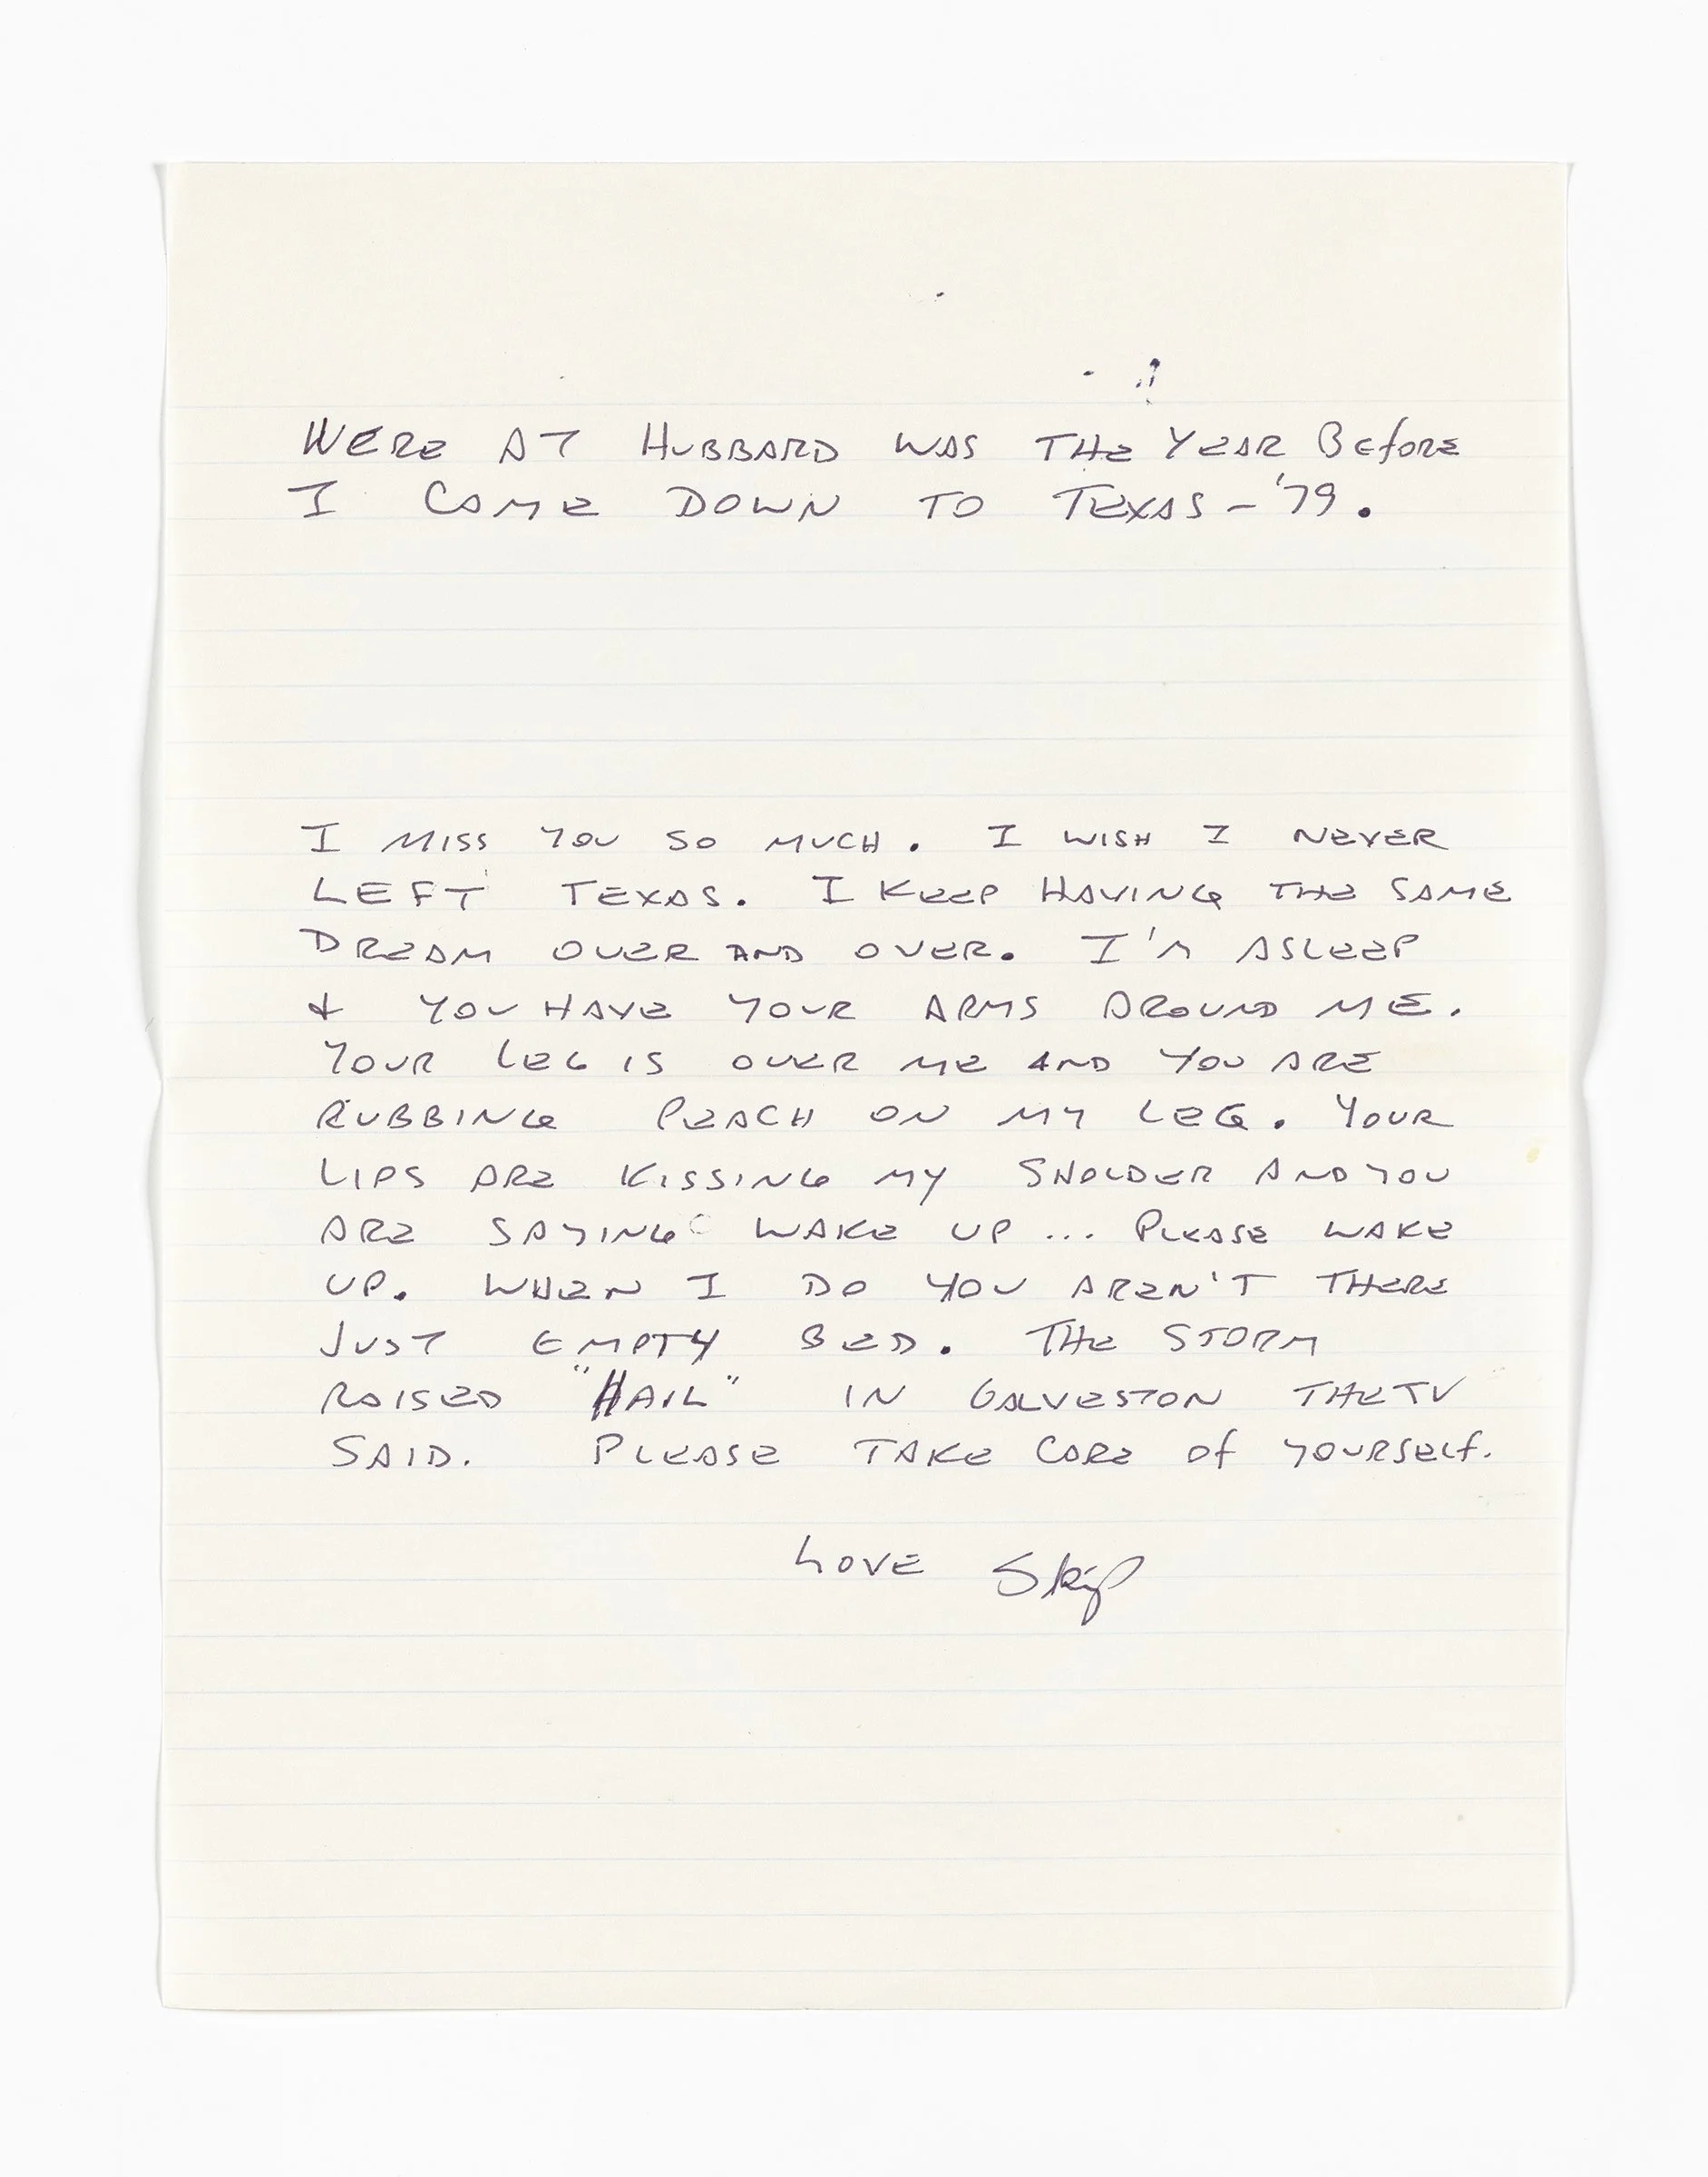 WERE AT HUBBARD WAS THE YEAR BEFORE
I COME DOWN TO TEXAS - '79.
I MISS YOU SO MUCH. I WISH I NEVER
LEFT TEXAS. I KEEP HAVING THE SAME
DREAM OVER AND OVER. I'M ASLEEP
& YOU HAVE YOUR ARMS AROUND ME.
YOUR LEG IS OVER ME AND YOU ARE
RUBBING PEACH ON MY LEG. YOUR
LIPS ARE KISSING MY SHOLDER AND YOU
ARE SAYING WAKE UP ... PLEASE WAKE
UP. WHEN I DO YOU AREN'T THERE
JUST EMPTY BED. THE STORM
RAISED "HAIL" IN GALVESTON THE TV
SAID. PLEASE TAKE CARE OF YOURSELF.
LOVE Skip